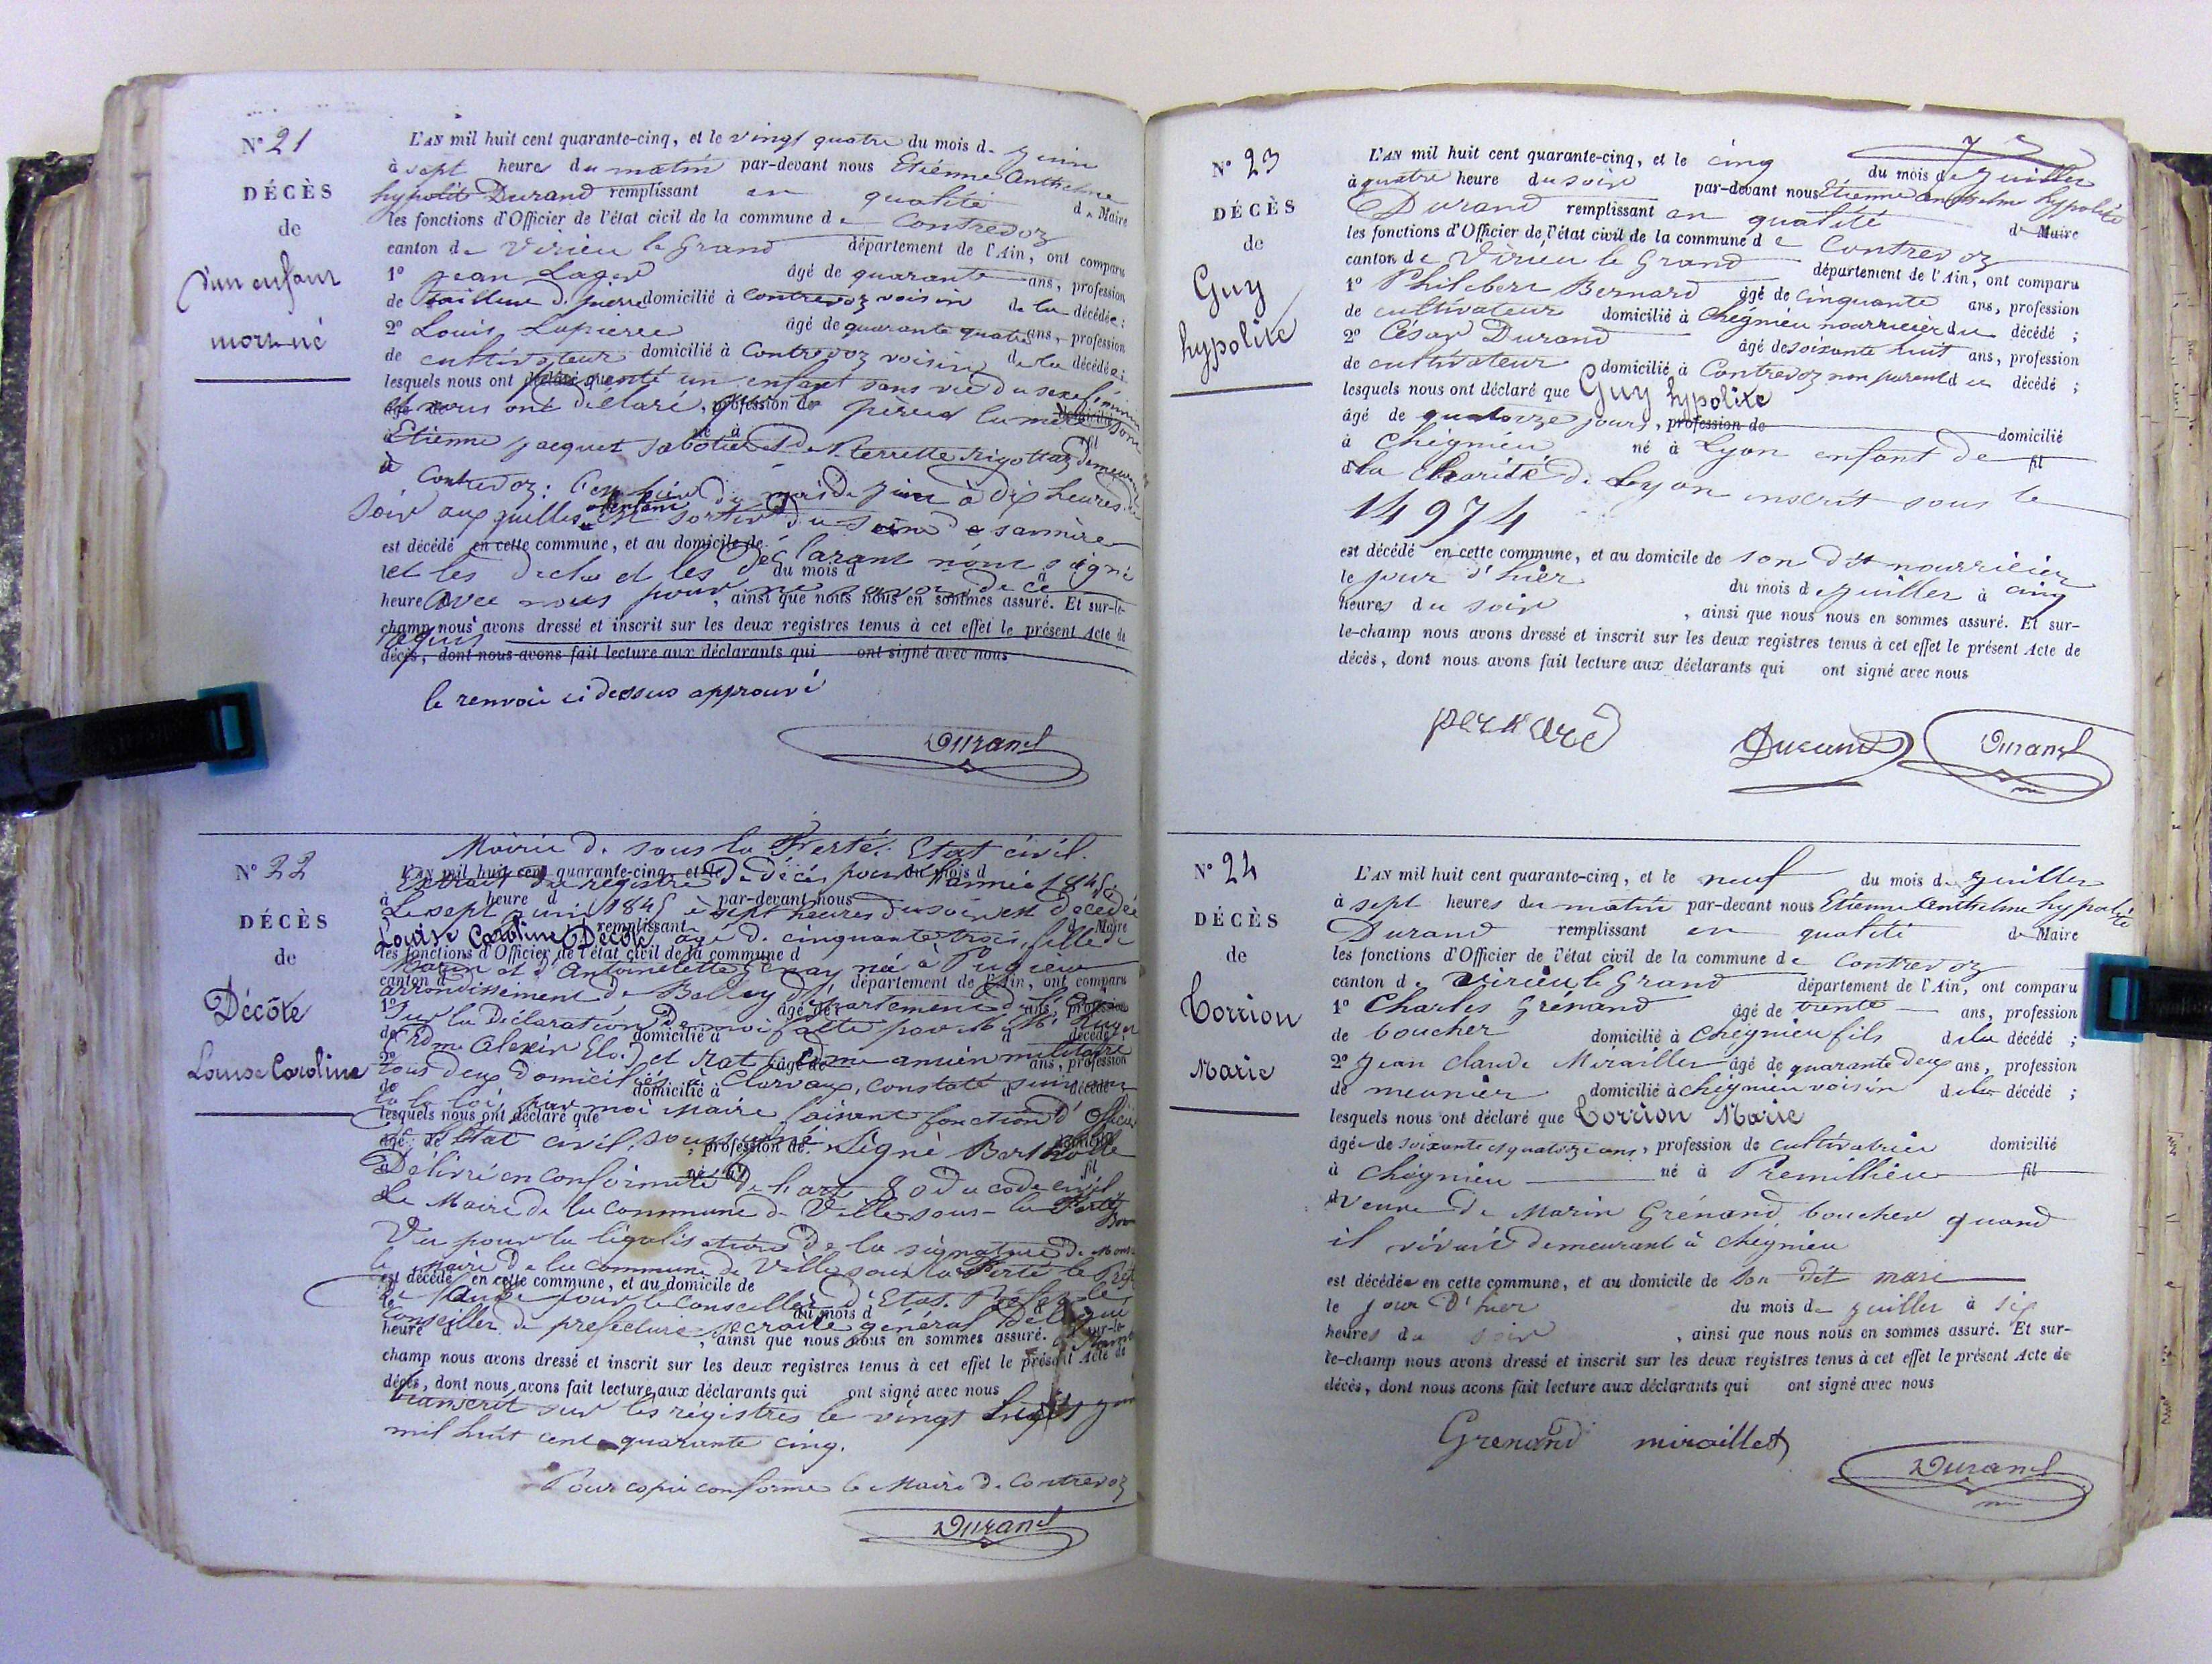 N° 21
DÉCÈS
de
d'un enfant
mort-né
L'AN mil huit cent quarante-cinq, et le vingt quatre du mois de juin
à sept heure du matin par-devant nous Etienne Anthelme
hypolite Durand remplissant en qualité de Maire
les fonctions d'Officier de l'état civil de la commune de Contrevoz
canton de Virieu le Grand département de l'Ain, ont comparu
1° Jean Lager âgé de quarante ans, profession
de tailleur de pierre domicilié à Contrevoz voisin de la décédée ;
2° Louis Lapierre âgé de quarante quatre ans, profession
de cultivateur domicilié à Contrevoz voisin de la décédée ;
lesquels nous ont déclaré un enfant sans vie du sexe féminin
et nous ont déclaré, profession de père la mère
Etienne jacquet sabotier et de Perrette Rigottaz demeurant
à Contrevoz : du mois de juin à dix heures du
soir l'enfant est sortie du sein de sa mère
est décédé en cette commune, et au domicile de
et les déclarant n'ont signé
du mois d
heure avec nous pour ne savoir de ce, ainsi que nous nous en sommes assuré. Et sur-le-
champ nous avons dressé et inscrit sur les deux registres tenus à cet effet le présent Acte de
requis
décès, dont nous avons fait lecture aux déclarants qui ont signé avec nous
le renvoi ci dessus approuvé
Durand
N° 22
DÉCÈS
de
Décôte
Louise Caroline
Mairie de sous la Ferté. Etat civil.
L'AN mil huit cent quarante-cinq, et le du mois d
Extrait du registre de décès pour l'année 1845.
à heure d par-devant nous
Le sept juin 1845 à sept heures du soir est décédée
remplissant d Maire
Louise Caroline Décôte âgé de cinquante trois, fille de
les fonctions d'Officier de l'état civil de la commune d
Marin et d'Antoinetette Genay né à Pugieu
canton d département de l'Ain, ont comparu
arrondissement de Belley département de l'Ain
1° âgé de ans, profession
Sur la Déclaration de moi faite par
de domicilié à d décédé ;
Edme Alexis Eloi et Rat Edme ancien militaire
2° âgé de ans, profession
tous deux domiciliés à Clairvaux, constaté suivant
de domicilié à d décédé
la loi, par moi Maire faisant fonction d'Officier
lesquels nous ont déclaré que
de l'état civil, soussigné. Signé Bertholle
âgé de, profession de domicilié
Délivré en conformité de l'art 80 du code civil
né à fil
Le Maire de la commune de Ville sous-la Ferté
Vu pour la légalisation de la signature de
le Maire de la commune de Ville sous la Ferté le
est décédé en cette commune, et au domicile de
de l'Aube pour le Conseiller d'Etat.
le du mois d
Conseiller de prefecture secrétaire général Délégué
heure d, ainsi que nous nous en sommes assuré. Et sur-le-
champ nous avons dressé et inscrit sur les deux registres tenus à cet effet le présent Acte de
décès, dont nous avons fait lecture aux déclarants qui ont signé avec nous
transcrit sur les régistres le vingt huit juin
mil huit cent quarante cinq.
Pour copie conforme le Maire de Contrevoz
Durand
N° 23
DÉCÈS
de
Guy
hypolite
L'AN mil huit cent quarante-cinq, et le cinq du mois de juillet
à quatre heure du soir par-devant nous Etienne Anthelme hypolite
Durand remplissant en qualité de Maire
les fonctions d'Officier de l'état civil de la commune de Contrevoz
canton de Virieu le Grand département de l'Ain, ont comparu
1° Philibert Bernard âgé de cinquante ans, profession
de cultivateur domicilié à Chégnieu nourricier du décédé ;
2° César Durand âgé de soixante huit ans, profession
de cultivateur domicilié à Contrevoz non parent du décédé ;
lesquels nous ont déclaré que Guy hypolite
âgé de quatorze jours, profession de domicilié
à Chégnieu né à Lyon enfant de fil
de la Charité de Lyon inscrit sous le
14974
est décédé en cette commune, et au domicile de son dit nourricier
le jour d'hier du mois de juillet à cinq
heures du soir, ainsi que nous nous en sommes assuré. Et sur-
le-champ nous avons dressé et inscrit sur les deux registres tenus à cet effet le présent Acte de
décès, dont nous avons fait lecture aux déclarants qui ont signé avec nous
Durand Durand
N° 24
DÉCÈS
de
Torrion
Marie
L'AN mil huit cent quarante-cinq, et le neuf du mois de juillet
à sept heures du matin par-devant nous Etienne Anthelme hypolite
Durand remplissant en qualité de Maire
les fonctions d'Officier de l'état civil de la commune de Contrevoz
canton de Virieu le Grand département de l'Ain, ont comparu
1° Charles Grénand âgé de trente ans, profession
de boucher domicilié à Chégnieu fils de la décédé ;
2° Jean Claude Miraillet âgé de quarante deux ans, profession
de meunier domicilié à Chégnieu voisin de la décédé ;
lesquels nous ont déclaré que Torrion Marie
âgée de soixante et quatorze ans, profession de cultivatrice domicilié
à Chégnieu né à Premillieu fil
d Veuve de Marin Grénand boucher quand
il vivait demeurant à Chégnieu
est décédée en cette commune, et au domicile de son dit mari
le jour d'hier du mois de juillet à six
heures du soir, ainsi que nous nous en sommes assuré. Et sur-
le-champ nous avons dressé et inscrit sur les deux registres tenus à cet effet le présent Acte de
décès, dont nous avons fait lecture aux déclarants qui ont signé avec nous
Grenand miraillet
Durand